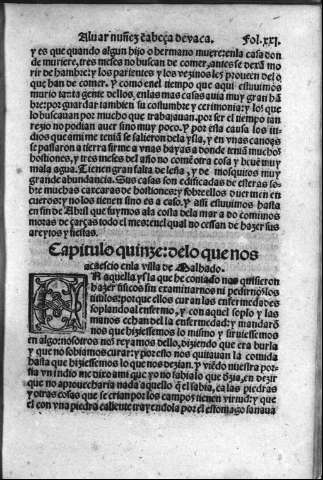 Aluar nuñez cabeça de vaca. Fol.xxj.
y es que quando algun hijo o hermano muere: enla casa don
de muriere, tres meses no buscan de comer, antes se dexã mo
rir de hambre: y los parientes y los vezinos les proueen delo
que han de comer. y como enel tiempo que aqui estuuimos
murio tanta gente dellos, enlas mas casas auia muy gran hã
bre: por guardar tambien su costumbre y cerimonia: y los que
lo buscauan por mucho que trabajauan, por ser el tiempo tan
rezio no podian auer sino muy poco. y por esta causa los in-
dios que ami me teniã se salieron dela ysla, y en vnas canoas
se passaron a tierra firme a vnas bayas adonde teniã muchos
hostiones, y tres meses del año no comẽ otra cosa y beuẽ muy
mala agua. Tienen gran falta de leña, y de mosquitos muy
grande abundancia. Sus casas son edificadas de esteras so-
bre muchas caxcaras de hostiones: y sobre ellos duermen en
cueros: y no los tienen sino es a caso. y assi estuuimos hasta
en fin de Abril que fuymos ala costa dela mar a do comimos
moras de çarças todo el mes: enel qual no cessan de hazer sus
areytos y fiestas.
Capitulo quinze: delo que nos
acaescio enla villa de Malhado.
EN aquella ysla que he contado nos quisieron
hazer fisicos sin examinarnos ni pedirnos los
titulos: porque ellos curan las enfermedades
soplando al enfermo, y con aquel soplo y las
manos echan del la enfermedad: y mandarõ
nos que hiziessemos lo mismo y siruiessemos
en algo: nosotros nos reyamos dello, diziendo que era burla
y que no sabiamos curar: y por esto nos quitauan la comida
hasta que hiziessemos lo que nos dezian. y viẽdo nuestra por-
fia vn indio me dixo ami que yo no sabia lo que dezia, en dezir
que no aprouecharia nada aquello q̃ el sabia, ca las piedras
y otras cosas que se crian por los campos tienen virtud: y que
el con vna piedra caliente trayendola por el estomago sanaua